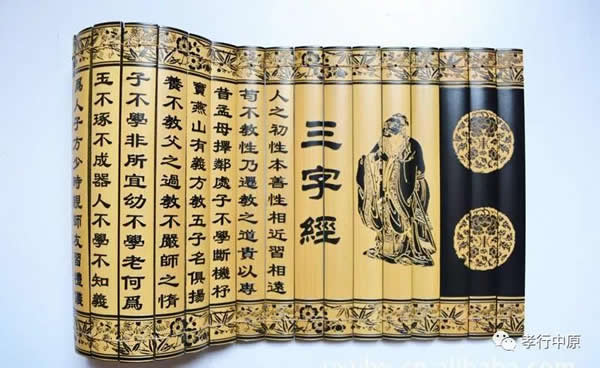 三字經
人之初性本善性相近習相遠
苟不教性乃遷教之道貴以專
昔孟母擇鄰處子不學斷機杼
竇燕山有義方教五子名俱揚
養不教父之過教不嚴師之惰
子不學非所宜幼不學老何爲
玉不琢不成器人不學不知義
爲人子方少時親師友習禮儀
孝行中原